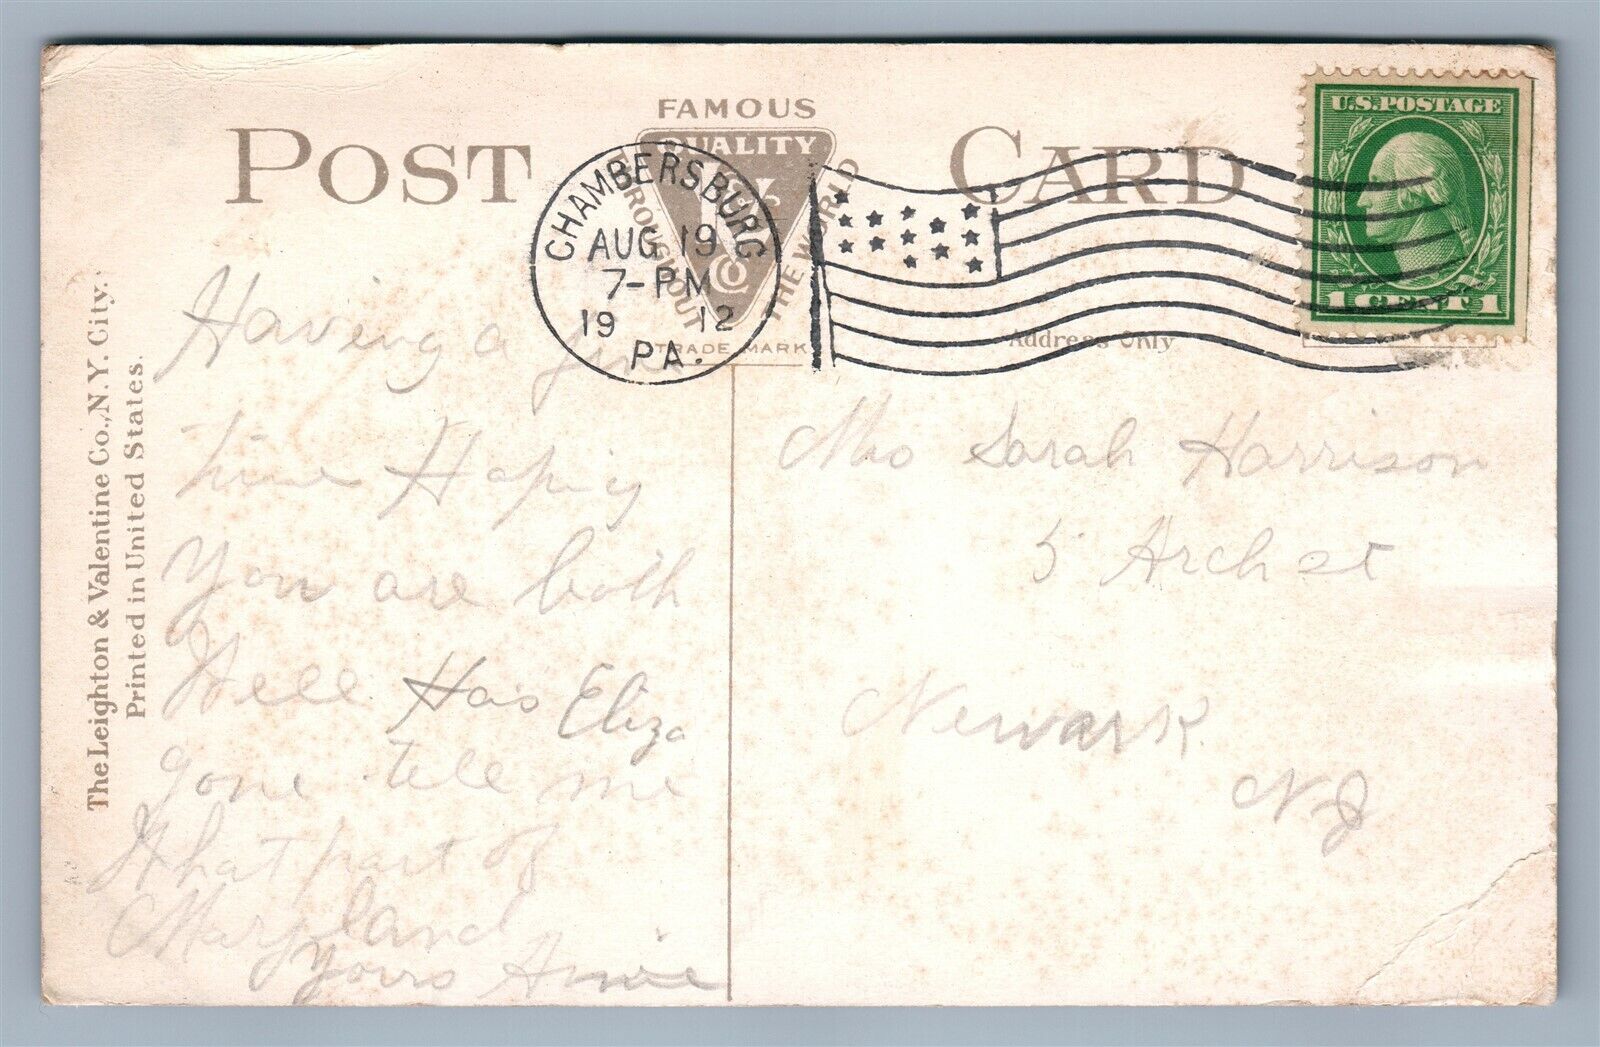 FAMOUS
POST CARD
QUALITY
THROUGHOUT THE WORLD
L & V
Co
TRADE MARK
CHAMBERSBURG
AUG 19
7-PM
19 12
PA.
U.S. POSTAGE
1 CENT 1
Address Only
The Leighton & Valentine Co., N.Y. City.
Printed in United States.
Having a fine
time Hoping
you are both
Well Has Eliza
gone tell me
What part of
Maryland
Yours Annie
Mrs Sarah Harrison
5 Arch st
Newark
N J